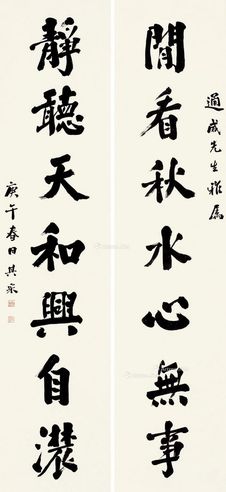 通成先生雅属
閒看秋水心無事
靜聽天和興自濃
庚午春日其采